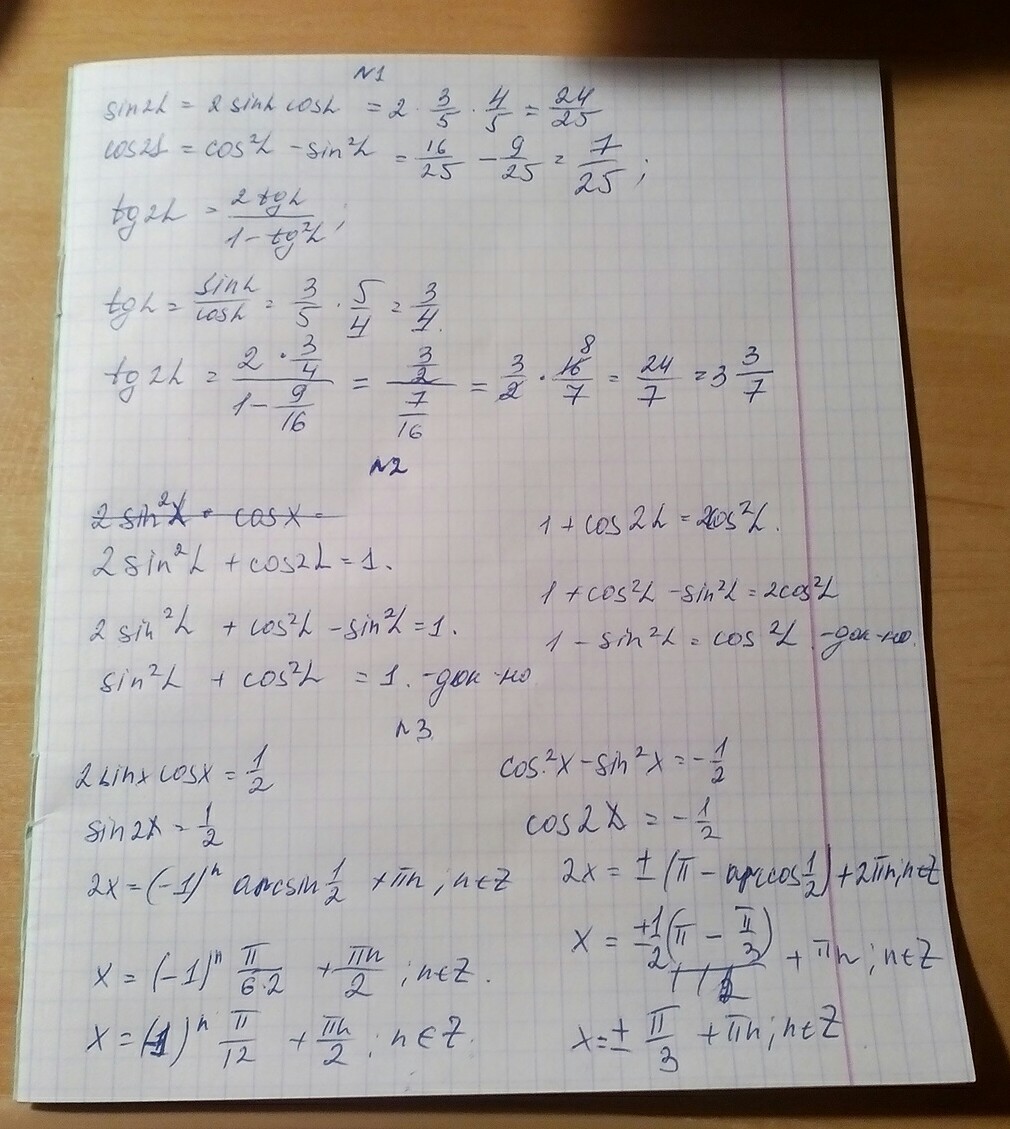 N1
sin2L = 2 sinL cosL = 2 · 3/5 · 4/5 = 24/25
cos2L = cos²L - sin²L = 16/25 - 9/25 = 7/25;
tg2L = 2tgL/(1-tg²L);
tgL = sinL/cosL = 3/5 · 5/4 = 3/4.
tg2L = (2 · 3/4)/(1 - 9/16) = (3/2)/(7/16) = 3/2 · 16 8/7 = 24/7 = 3 3/7
N2
2 sin²x · cosx =
2 sin²L + cos2L = 1.
2 sin²L + cos²L - sin²L = 1.
sin²L + cos²L = 1. -док-но
1 + cos2L = 2cos²L.
1 + cos²L - sin²L = 2cos²L
1 - sin²L = cos²L. -док-но.
N3.
2sinx cosx = 1/2
sin2x = 1/2
2x = (-1)ⁿ arcsin 1/2 + πn; n∈Z
x = (-1)ⁿ π/6·2 + πn/2; n∈Z.
x = (-1)ⁿ π/12 + πn/2; n∈Z.
cos²x - sin²x = -1/2
cos2x = -1/2
2x = ± (π - arccos 1/2) + 2πn; n∈Z
x = ±1/2 (π - π/3) + πn; n∈Z
x = ± π/3 + πn; n∈Z